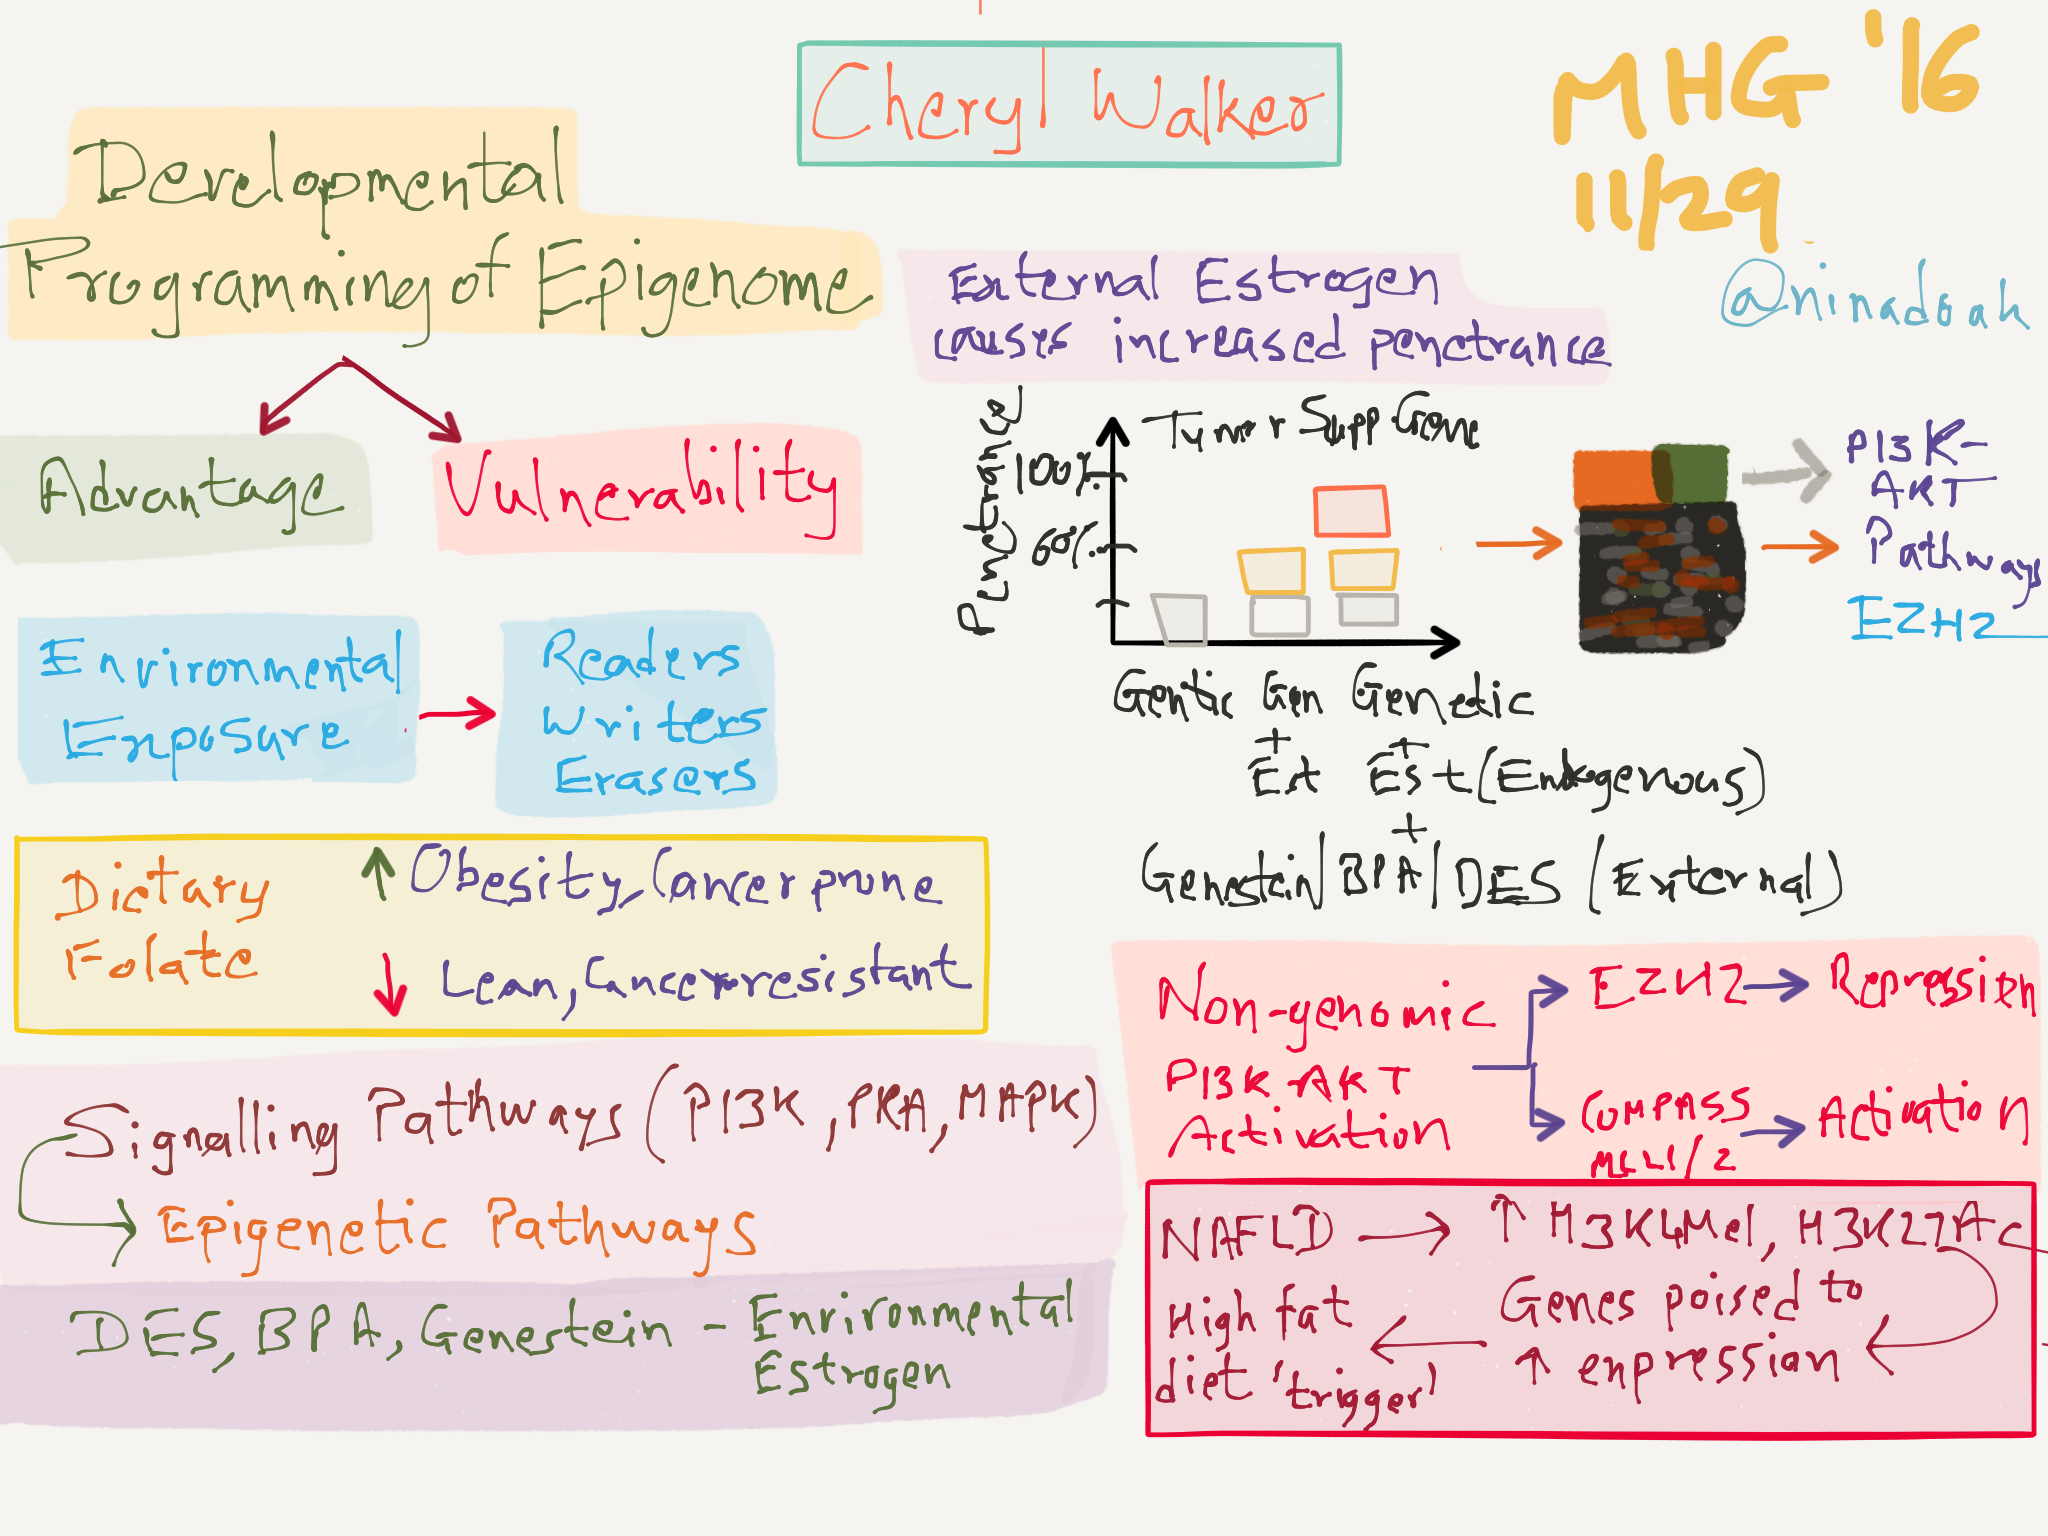 Cheryl Walker
MHG '16
11/29
@ninadoak
Developmental
Programming of Epigenome
Advantage
Vulnerability
Environmental
Exposure
Readers
Writers
Erasers
Dietary
Folate
↑ Obesity, Cancer prone
↓ Lean, Cancer resistant
Signalling Pathways (PI3K, PKA, MAPK)
Epigenetic Pathways
DES, BPA, Genestein - Environmental
Estrogen
External Estrogen
causes increased penetrance
Penetrance
Tumor Supp Gene
100%
60%
Gentic Gen Genetic
+ +
Est Est (Endogenous)
+
Genestein/BPA/DES (External)
PI3K-
AKT
Pathways
EZH2
Non-genomic
PI3K AKT
Activation
EZH2 → Repression
COMPASS → Activation
MLL1/2
NAFLD → ↑ H3K4Me1, H3K27Ac
Genes poised to
↑ expression
High fat
diet 'trigger'